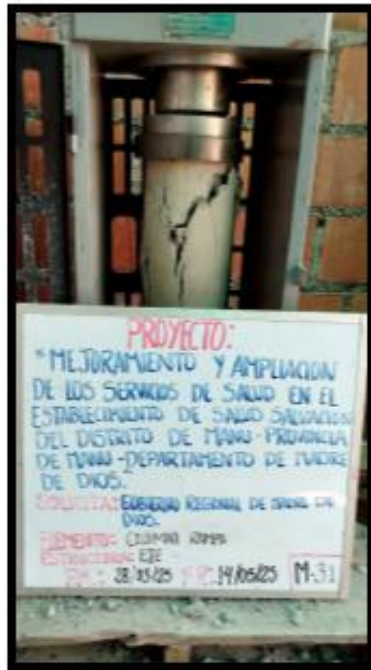 PROYECTO:
"MEJORAMIENTO Y AMPLIACION
DE LOS SERVICIOS DE SALUD EN EL
ESTABLECIMIENTO DE SALUD SALVACION
DEL DISTRITO DE MANU - PROVINCIA
DE MANU - DEPARTAMENTO DE MADRE
DE DIOS."
SOLICITA: GOBIERNO REGIONAL DE MADRE DE
DIOS.
ELEMENTO: COLUMNA RAMPA
ESTRUCTURA: EJE
F.M.: 28/03/25 F.R: 14/05/25 M-31